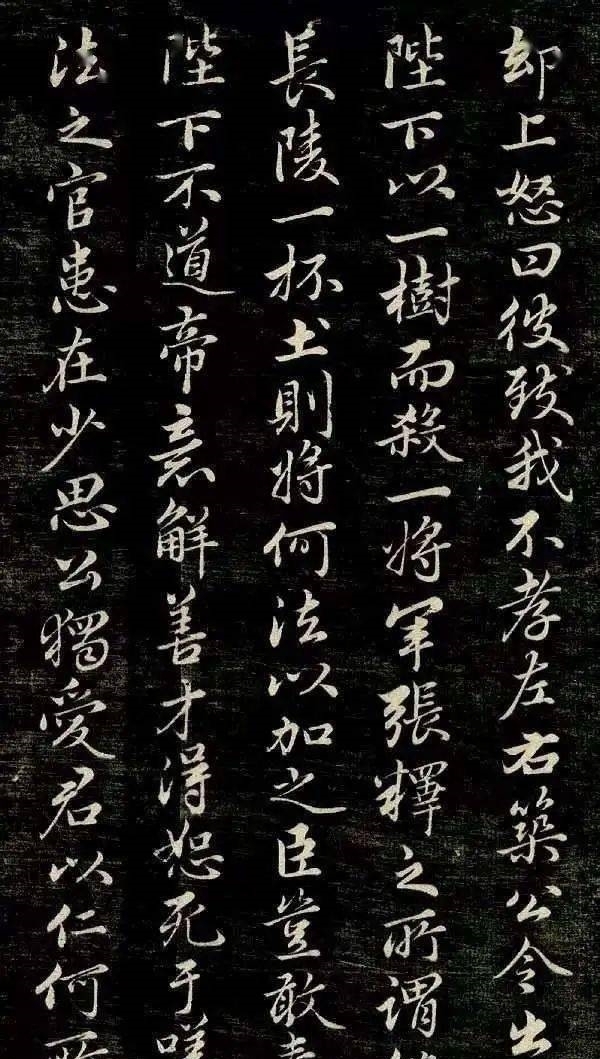 却上怒曰彼致我不孝左右築公令出
陛下以一樹而殺一将軍張釋之所謂
長陵一杯土則将何法以加之臣豈敢
陛下不道帝意解善才得恕死于
法之官患在少思公獨愛君以仁何所